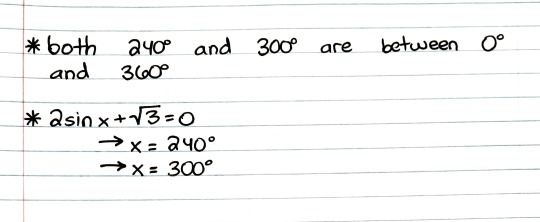 * both 240° and 300° are between 0°
and 360°
* 2sin x + √3 = 0
→ x = 240°
→ x = 300°